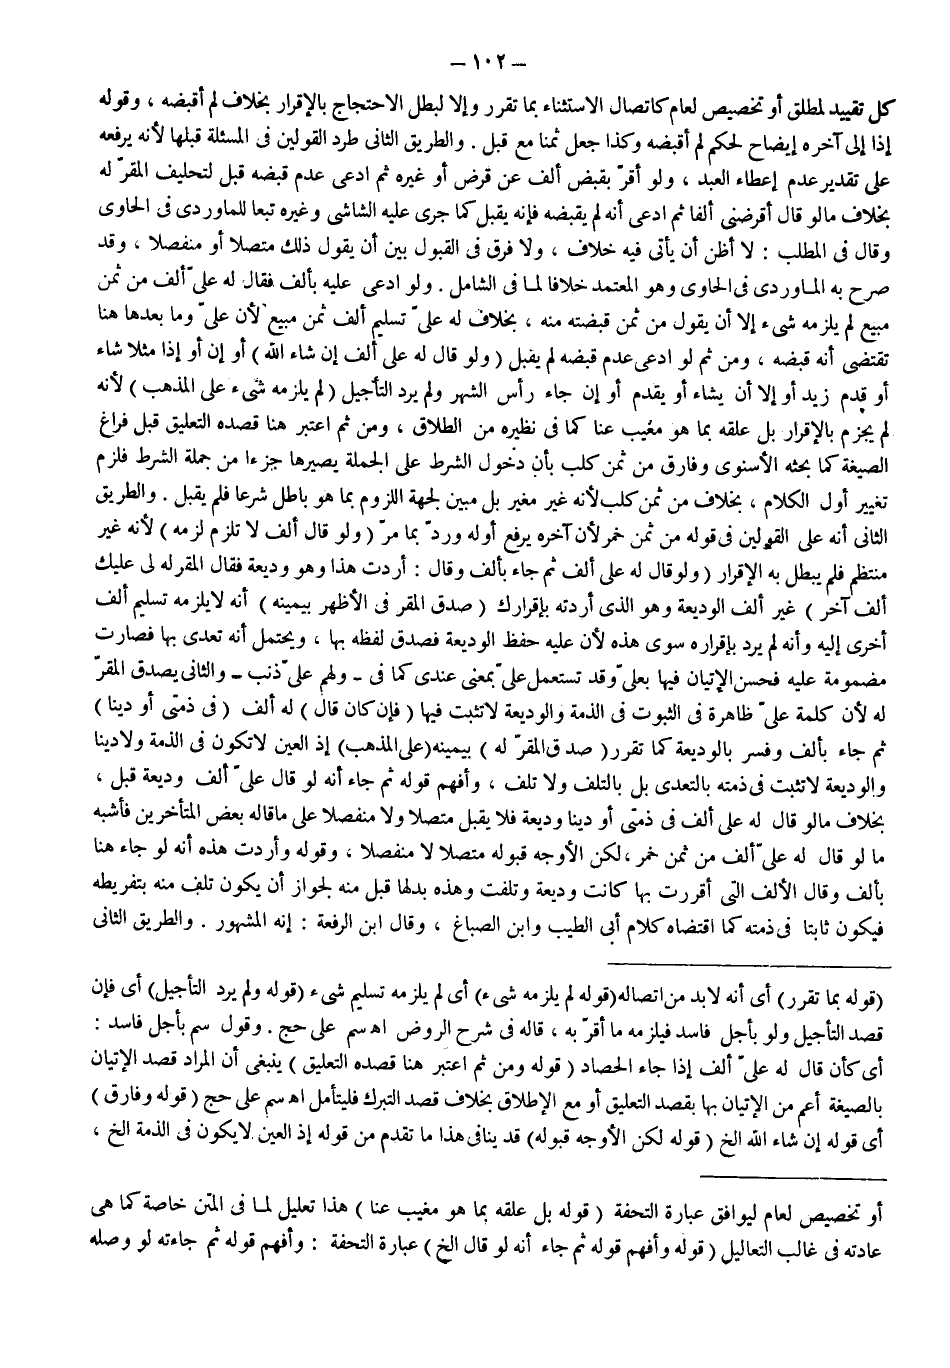 — ١٠٢ —
كل تقييد لمطلق أو تخصيص لعام كاتصال الاستثناء بما تقرر وإلا لبطل الاحتجاج بالإقرار بخلاف لم أقبضه ، وقوله
إذا إلى آخره إيضاح لحكم لم أقبضه وكذا جعل ثمنا مع قبل . والطريق الثانى طرد القولين فى المسئلة قبلها لأنه يرفعه
على تقدير عدم إعطاء العبد ، ولو أقرّ بقبض ألف عن قرض أو غيره ثم ادعى عدم قبضه قبل لتحليف المقرّ له
بخلاف مالو قال أقرضنى ألفا ثم ادعى أنه لم يقبضه فإنه يقبل كما جرى عليه الشاشى وغيره تبعا للماوردى فى الحاوى
وقال فى المطلب : لا أظن أن يأتى فيه خلاف ، ولا فرق فى القبول بين أن يقول ذلك متصلا أو منفصلا ، وقد
صرح به المـاوردى فى الحاوى وهو المعتمد خلافا لمـا فى الشامل . ولو ادعى عليه بألف فقال له علىّ ألف من ثمن
مبيع لم يلزمه شىء إلا أن يقول من ثمن قبضته منه ، بخلاف له علىّ تسليم ألف ثمن مبيع لأن علىّ وما بعدها هنا
تقتضى أنه قبضه ، ومن ثم لو ادعى عدم قبضه لم يقبل ( ولو قال له على ألف إن شاء الله ) أو إن أو إذا مثلا شاء
أو قدم زيد أو إلا أن يشاء أو يقدم أو إن جاء رأس الشهر ولم يرد التأجيل ( لم يلزمه شىء على المذهب ) لأنه
لم يجزم بالإقرار بل علقه بما هو مغيب عنا كما فى نظيره من الطلاق ، ومن ثم اعتبر هنا قصده التعليق قبل فراغ
الصيغة كما بحثه الأسنوى وفارق من ثمن كلب بأن دخول الشرط على الجملة يصيرها جزءا من جملة الشرط فلزم
تغيير أول الكلام ، بخلاف من ثمن كلب لأنه غير مغير بل مبين لجهة اللزوم بما هو باطل شرعا فلم يقبل . والطريق
الثانى أنه على القولين فى قوله من ثمن خمر لأن آخره يرفع أوله وردّ بما مرّ ( ولو قال ألف لا تلزم لزمه ) لأنه غير
منتظم فلم يبطل به الإقرار ( ولو قال له على ألف ثم جاء بألف وقال : أردت هذا وهو وديعة فقال المقر له لى عليك
ألف آخر ) غير ألف الوديعة وهو الذى أردته بإقرارك ( صدق المقر فى الأظهر بيمينه ) أنه لايلزمه تسليم ألف
أخرى إليه وأنه لم يرد بإقراره سوى هذه لأن عليه حفظ الوديعة فصدق لفظه بها ، ويحتمل أنه تعدى بها فصارت
مضمومة عليه فحسن الإتيان فيها بعلىّ وقد تستعمل علىّ بمعنى عندى كما فى ــ ولهم علىّ ذنب ــ والثانى يصدق المقرّ
له لأن كلمة علىّ ظاهرة فى الثبوت فى الذمة والوديعة لاتثبت فيها ( فإن كان قال ) له ألف ( فى ذمتى أو دينا )
ثم جاء بألف وفسر بالوديعة كما تقرر ( صدق المقرّ له ) بيمينه (على المذهب) إذ العين لاتكون فى الذمة ولادينا
والوديعة لاتثبت فى ذمته بالتعدى بل بالتلف ولا تلف ، وأفهم قوله ثم جاء أنه لو قال علىّ ألف وديعة قبل ،
بخلاف مالو قال له على ألف فى ذمتى أو دينا وديعة فلا يقبل متصلا ولا منفصلا على ماقاله بعض المتأخرين فأشبه
ما لو قال له علىّ ألف من ثمن خمر ، لكن الأوجه قبوله متصلا لا منفصلا ، وقوله وأردت هذه أنه لو جاء هنا
بألف وقال الألف التى أقررت بها كانت وديعة وتلفت وهذه بدلها قبل منه لجواز أن يكون تلف منه بتفريطه
فيكون ثابتا فى ذمته كما اقتضاه كلام أبى الطيب وابن الصباغ ، وقال ابن الرفعة : إنه المشهور . والطريق الثانى
(قوله بما تقرر) أى أنه لابد من اتصاله (قوله لم يلزمه شىء) أى لم يلزمه تسليم شىء (قوله ولم يرد التأجيل) أى فإن
قصد التأجيل ولو بأجل فاسد فيلزمه ما أقرّ به ، قاله فى شرح الروض اه سم على حج . وقول سم بأجل فاسد :
أى كأن قال له علىّ ألف إذا جاء الحصاد ( قوله ومن ثم اعتبر هنا قصده التعليق ) ينبغى أن المراد قصد الإتيان
بالصيغة أعم من الإتيان بها بقصد التعليق أو مع الإطلاق بخلاف قصد التبرك فليتأمل اه سم على حج ( قوله وفارق )
أى قوله إن شاء الله الخ ( قوله لكن الأوجه قبوله) قد ينافى هذا ما تقدم من قوله إذ العين لايكون فى الذمة الخ ،
أو تخصيص لعام ليوافق عبارة التحفة ( قوله بل علقه بما هو مغيب عنا ) هذا تعليل لمـا فى المتن خاصة كما هى
عادته فى غالب التعاليل ( قوله وأفهم قوله ثم جاء أنه لو قال الخ ) عبارة التحفة : وأفهم قوله ثم جاءته لو وصله